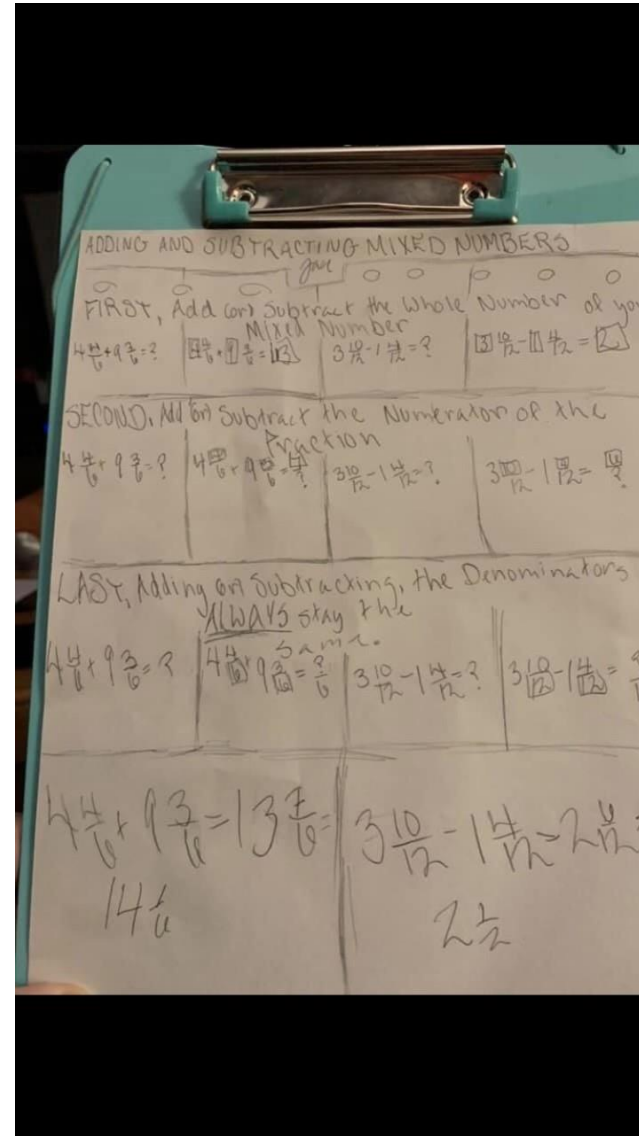 ADDING AND SUBTRACTING MIXED NUMBERS
FIRST, Add (or) Subtract the Whole Number of you
Mixed Number
4 4/6 + 9 3/6 = ? 4 4/6 + 9 3/6 = 13 3 10/12 - 1 4/12 = ? 3 10/12 - 1 4/12 = 2
SECOND, Add (or) Subtract the Numerator of the
Fraction
4 4/6 + 9 3/6 = ? 4 4/6 + 9 3/6 = 7/? 3 10/12 - 1 4/12 = ? 3 10/12 - 1 4/12 = 6/?
LAST, Adding or Subtracting, the Denominators
ALWAYS stay the
same.
4 4/6 + 9 3/6 = ? 4 4/6 + 9 3/6 = ?/6 3 10/12 - 1 4/12 = ? 3 10/12 - 1 4/12 =
4 4/6 + 9 3/6 = 13 7/6 = 3 10/12 - 1 4/12 = 2 6/12
14 1/6 2 1/2